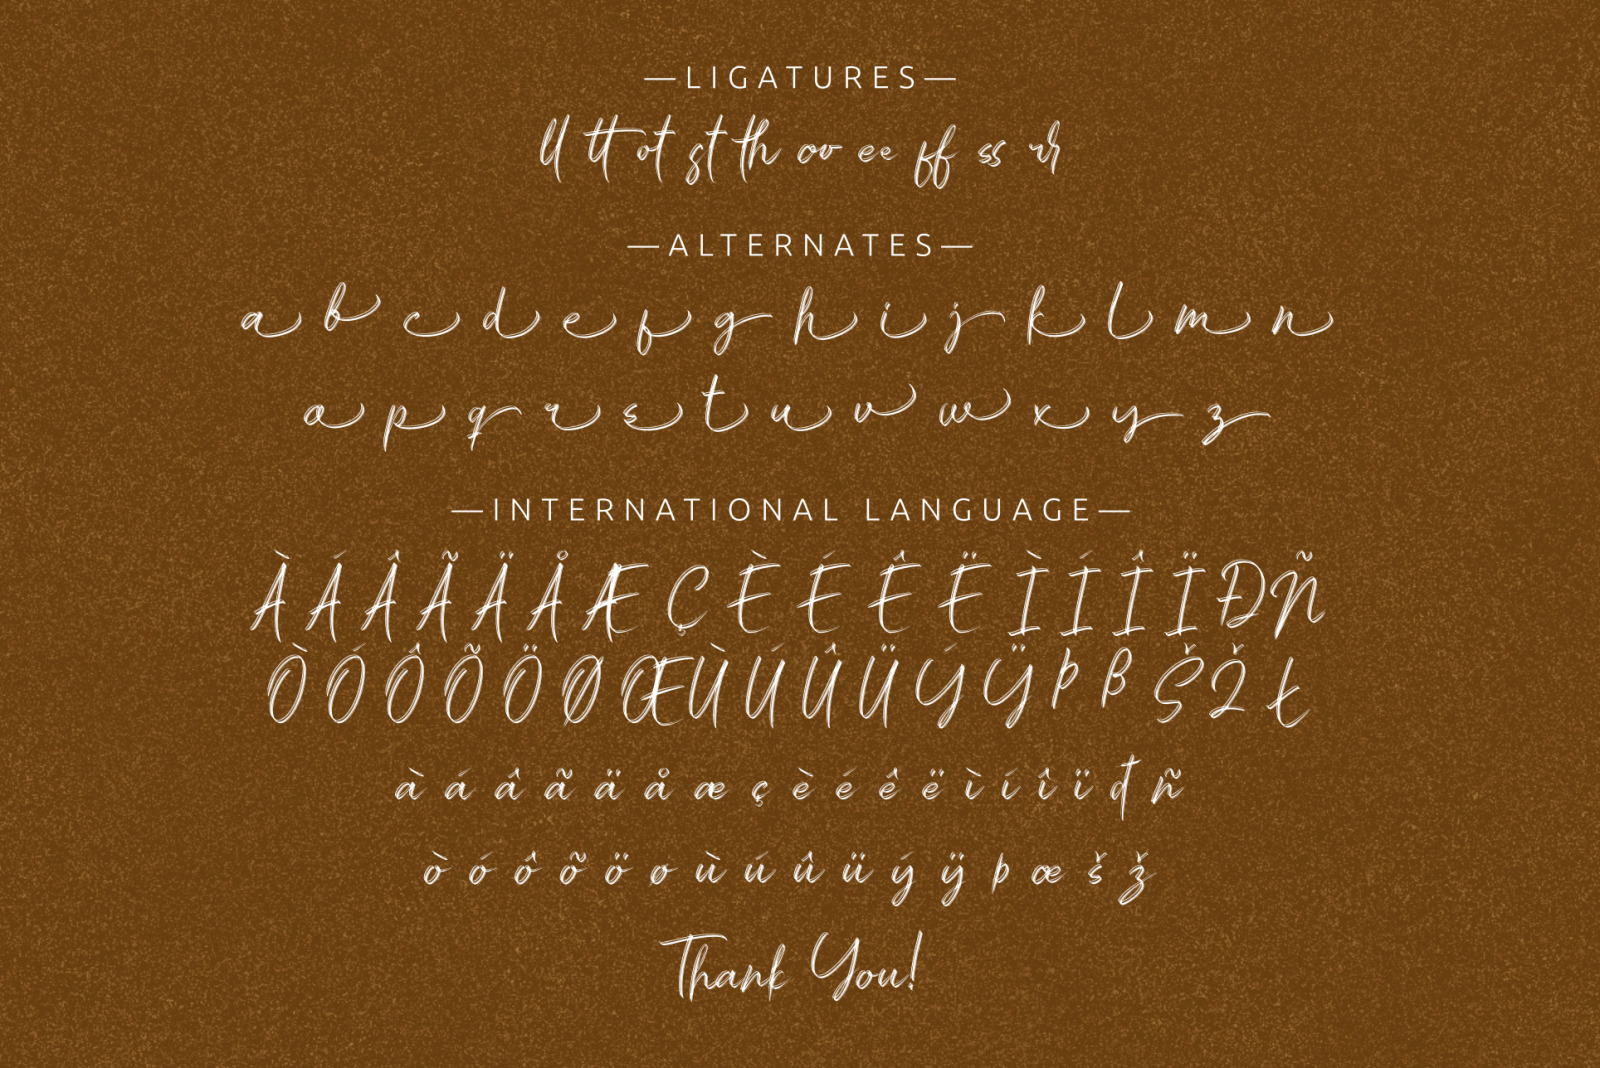 —LIGATURES—
ll tt ot st th oo ee ff ss rr
—ALTERNATES—
a b c d e f g h i j k l m n
o p q r s t u v w x y z
—INTERNATIONAL LANGUAGE—
À Á Â Ã Ä Å Æ Ç È É Ê Ë Ì Í Î Ï Ð Ñ
Ò Ó Ô Õ Ö Ø Œ Ù Ú Û Ü Ý Ÿ Þ ß Š Ž Ł
à á â ã ä å æ ç è é ê ë ì í î ï đ ñ
ò ó ô õ ö ø ù ú û ü ý ÿ þ œ š ž
Thank You!